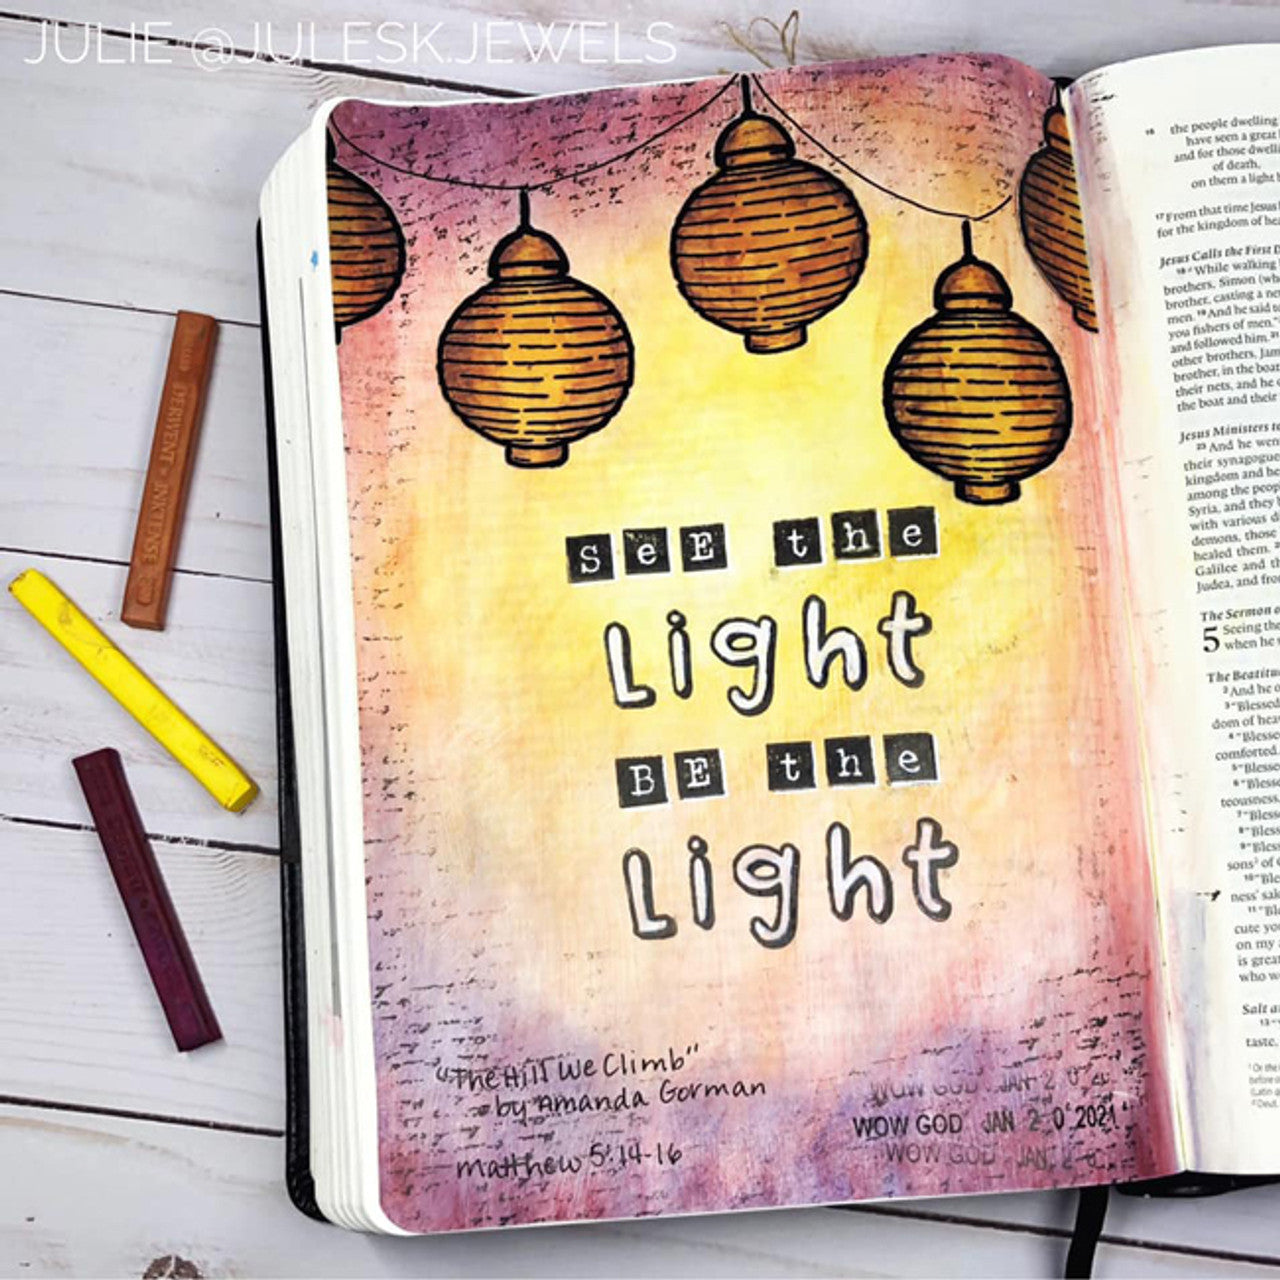 JULIE @JULESKJEWELS
SeE the
Light
BE the
Light
"The Hill We Climb"
by Amanda Gorman
Matthew 5:14-16
WOW GOD JAN 2 0 202
WOW GOD JAN 2 0 2021
WOW GOD JAN 2 0
DERWENT INKTENSE
16 the people dwelling
have seen a great
and for those dwelli
of death,
on them a light
17 From that time Jesus
for the kingdom of hea
Jesus Calls the First D
18 "While walking
brothers, Simon (wh
brother, casting a ne
men. 19 And he said to
you fishers of men."
and followed him. 21
other brothers, Jam
brother, in the boat
their nets, and he c
the boat and their
Jesus Ministers to
23 And he wen
their synagogue
kingdom and he
among the peop
Syria, and they b
with various d
demons, those
healed them. 2
Galilee and th
Judea, and fro
The Sermon o
5 Seeing the
when he
The Beatitu
2 And he o
3 "Blessed
dom of heav
4 "Blesse
comforted.
5 "Blesse
6 "Blesse
teousness,
7 "Bless
8 "Bless
9 "Bless
sons of
10 "Ble
ness' sak
11 "Bl
cute you
on my
is grea
who w
Salt a
13 "
taste,